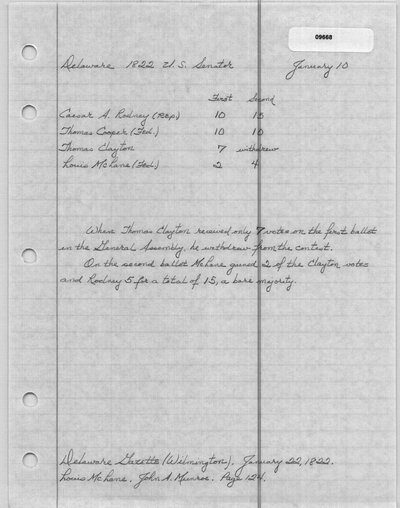 09668
Delaware 1822 U.S. Senator January 10
First Second
Caesar A. Rodney (Rep.) 10 15
Thomas Cooper (Fed.) 10 10
Thomas Clayton 7 withdrew
Louis McLane (Fed.) 2 4
When Thomas Clayton received only 7 votes on the first ballot
in the General Assembly, he withdrew from the contest.
On the second ballot McLane gained 2 of the Clayton votes
and Rodney 5 for a total of 15, a bare majority.
Delaware Gazette (Wilmington). January 22, 1822.
Louis McLane. John A. Munroe. Page 124.